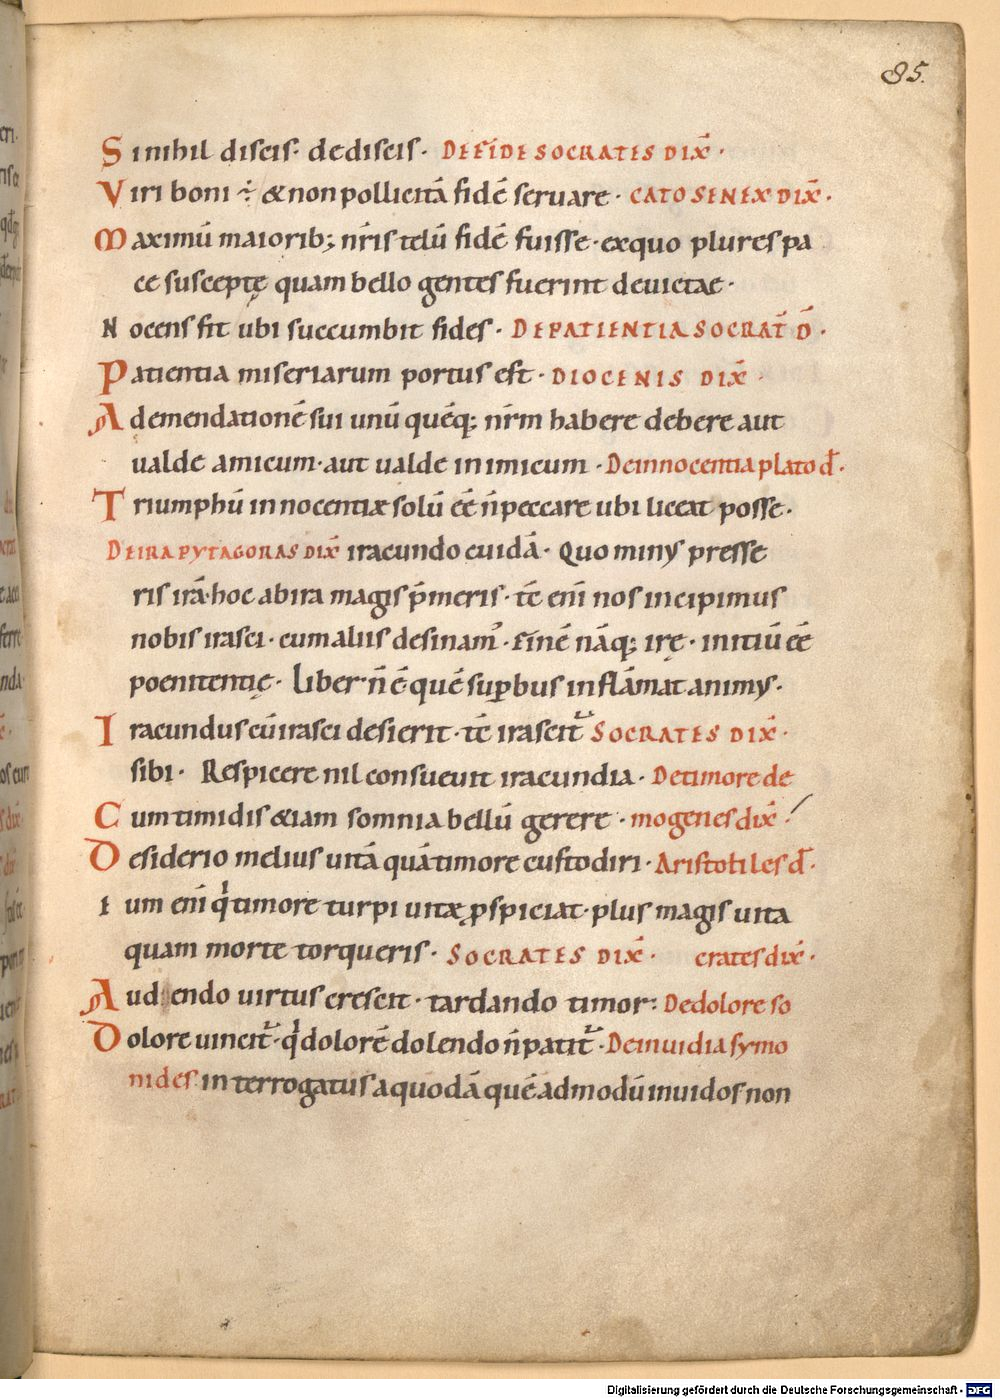 85.
Si nihil discis. dediscis. DE FIDE SOCRATES DIX̄.
Viri boni ÷ & non pollicitā fidē seruare. CATO SENEX DIX̄.
Maximū maiorib; nr̄is telū fidē fuisse. ex quo plures pa
ce susceptę quam bello gentes fuerint deuictae.
Nocens fit ubi succumbit fides. DE PATIENTIA SOCRAT̄ D̄.
Patientia miseriarum portus est. DIOCENIS DIX̄.
Ad emendationē sui unū quēq; nr̄m habere debere aut
ualde amicum. aut ualde inimicum. De innocentia plato d̄.
Triumphū innocentiæ solū ēē n̄ peccare ubi liceat posse.
DE IRA PYTAGORAS DIX̄ iracundo cuidā. Quo minꝰ presse
ris irā. hoc ab ira magis p̄meris. tē eni̅ nos incipimus
nobis irasci. cum aliis desinamꝰ. Finē nāq; irę. initiū ēē
poenitentię. Liber n̄ ē. quē sup̱bus inflāmat animꝰ.
Iracundus cū irasci desierit. tē irascit̄ SOCRATES DIX̄.
sibi. Respicere nil consueuit iracundia. De timore de
Cum timidis &iam somnia bellū gerere. mogenes dix̄
Desiderio melius uitā quā timore custodiri. Aristotiles d̄.
Eum eni̅ q̇ timore turpi uitæ ꝓspiciat. plus magis uita
quam morte torqueris. SOCRATES DIX̄. crates dix̄.
Audendo uirtus crescit. tardando timor: De dolore so
Dolore uincit̄. q̇ dolorē dolendo n̄ patit̄. De inuidia symo
nides. interrogatus a quodā quē ad modū inuidos non
Digitalisierung gefördert durch die Deutsche Forschungsgemeinschaft - DFG